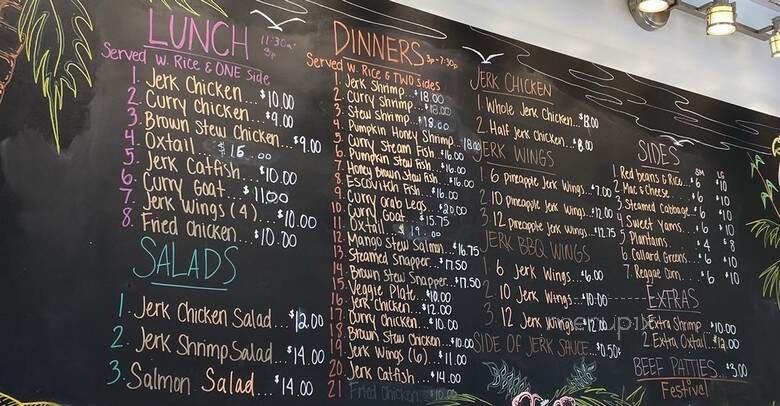 LUNCH 11:30a-3p
Served w. Rice & ONE side
1. Jerk Chicken...$10.00
2. Curry Chicken...$9.00
3. Brown Stew Chicken...$9.00
4. Oxtail...$15.00
5. Jerk Catfish...$10.00
6. Curry Goat...$11.00
7. Jerk Wings (4)...$10.00
8. Fried Chicken...$10.00
SALADS
1. Jerk Chicken Salad...$12.00
2. Jerk Shrimp Salad...$14.00
3. Salmon Salad...$14.00
DINNERS 3p-7:30p
Served w. Rice & TWO sides
1. Jerk Shrimp...$18.00
2. Curry Shrimp...$18.00
3. Stew Shrimp...$18.00
4. Pumpkin Honey Shrimp...$18.00
5. Curry Steam Fish...$16.00
6. Pumpkin Stew Fish...$16.00
7. Honey Brown Stew Fish...$16.00
8. Escovitch Fish...$16.00
9. Curry Crab Legs...$20.00
10. Curry Goat...$15.75
11. Oxtail...$19.00
12. Mango Stew Salmon...$16.75
13. Steamed Snapper...$17.50
14. Brown Stew Snapper...$17.50
15. Veggie Plate...$10.00
16. Jerk Chicken...$12.00
17. Curry Chicken...$10.00
18. Brown Stew Chicken...$10.00
19. Jerk Wings (6)...$11.00
20. Jerk Catfish...$14.00
21 Fried Chicken...$10.00
JERK CHICKEN
1. Whole Jerk Chicken...$13.00
2. Half Jerk Chicken...$8.00
JERK WINGS
1. 6 Pineapple Jerk Wings...$7.00
2. 10 Pineapple Jerk Wings...$12.00
3. 12 Pineapple Jerk Wings...$12.75
JERK BBQ WINGS
1 6 Jerk Wings...$6.00
2 10 Jerk Wings...$10.00
3 12 Jerk Wings...$12.00
SIDE OF JERK SAUCE...$0.50
SIDES
SM LG
1. Red beans & Rice...$6 $10
2. Mac & Cheese...$6 $10
3. Steamed Cabbage...$6 $10
4. Sweet Yams...$6 $10
5. Plantains...$4 $8
6. Collard Greens...$6 $10
7. Reggae Corn...$6 $10
EXTRAS
1 Extra Shrimp $10.00
2 Extra Oxtail...$12.00
BEEF PATTIES...$3.00
Festival
menupix